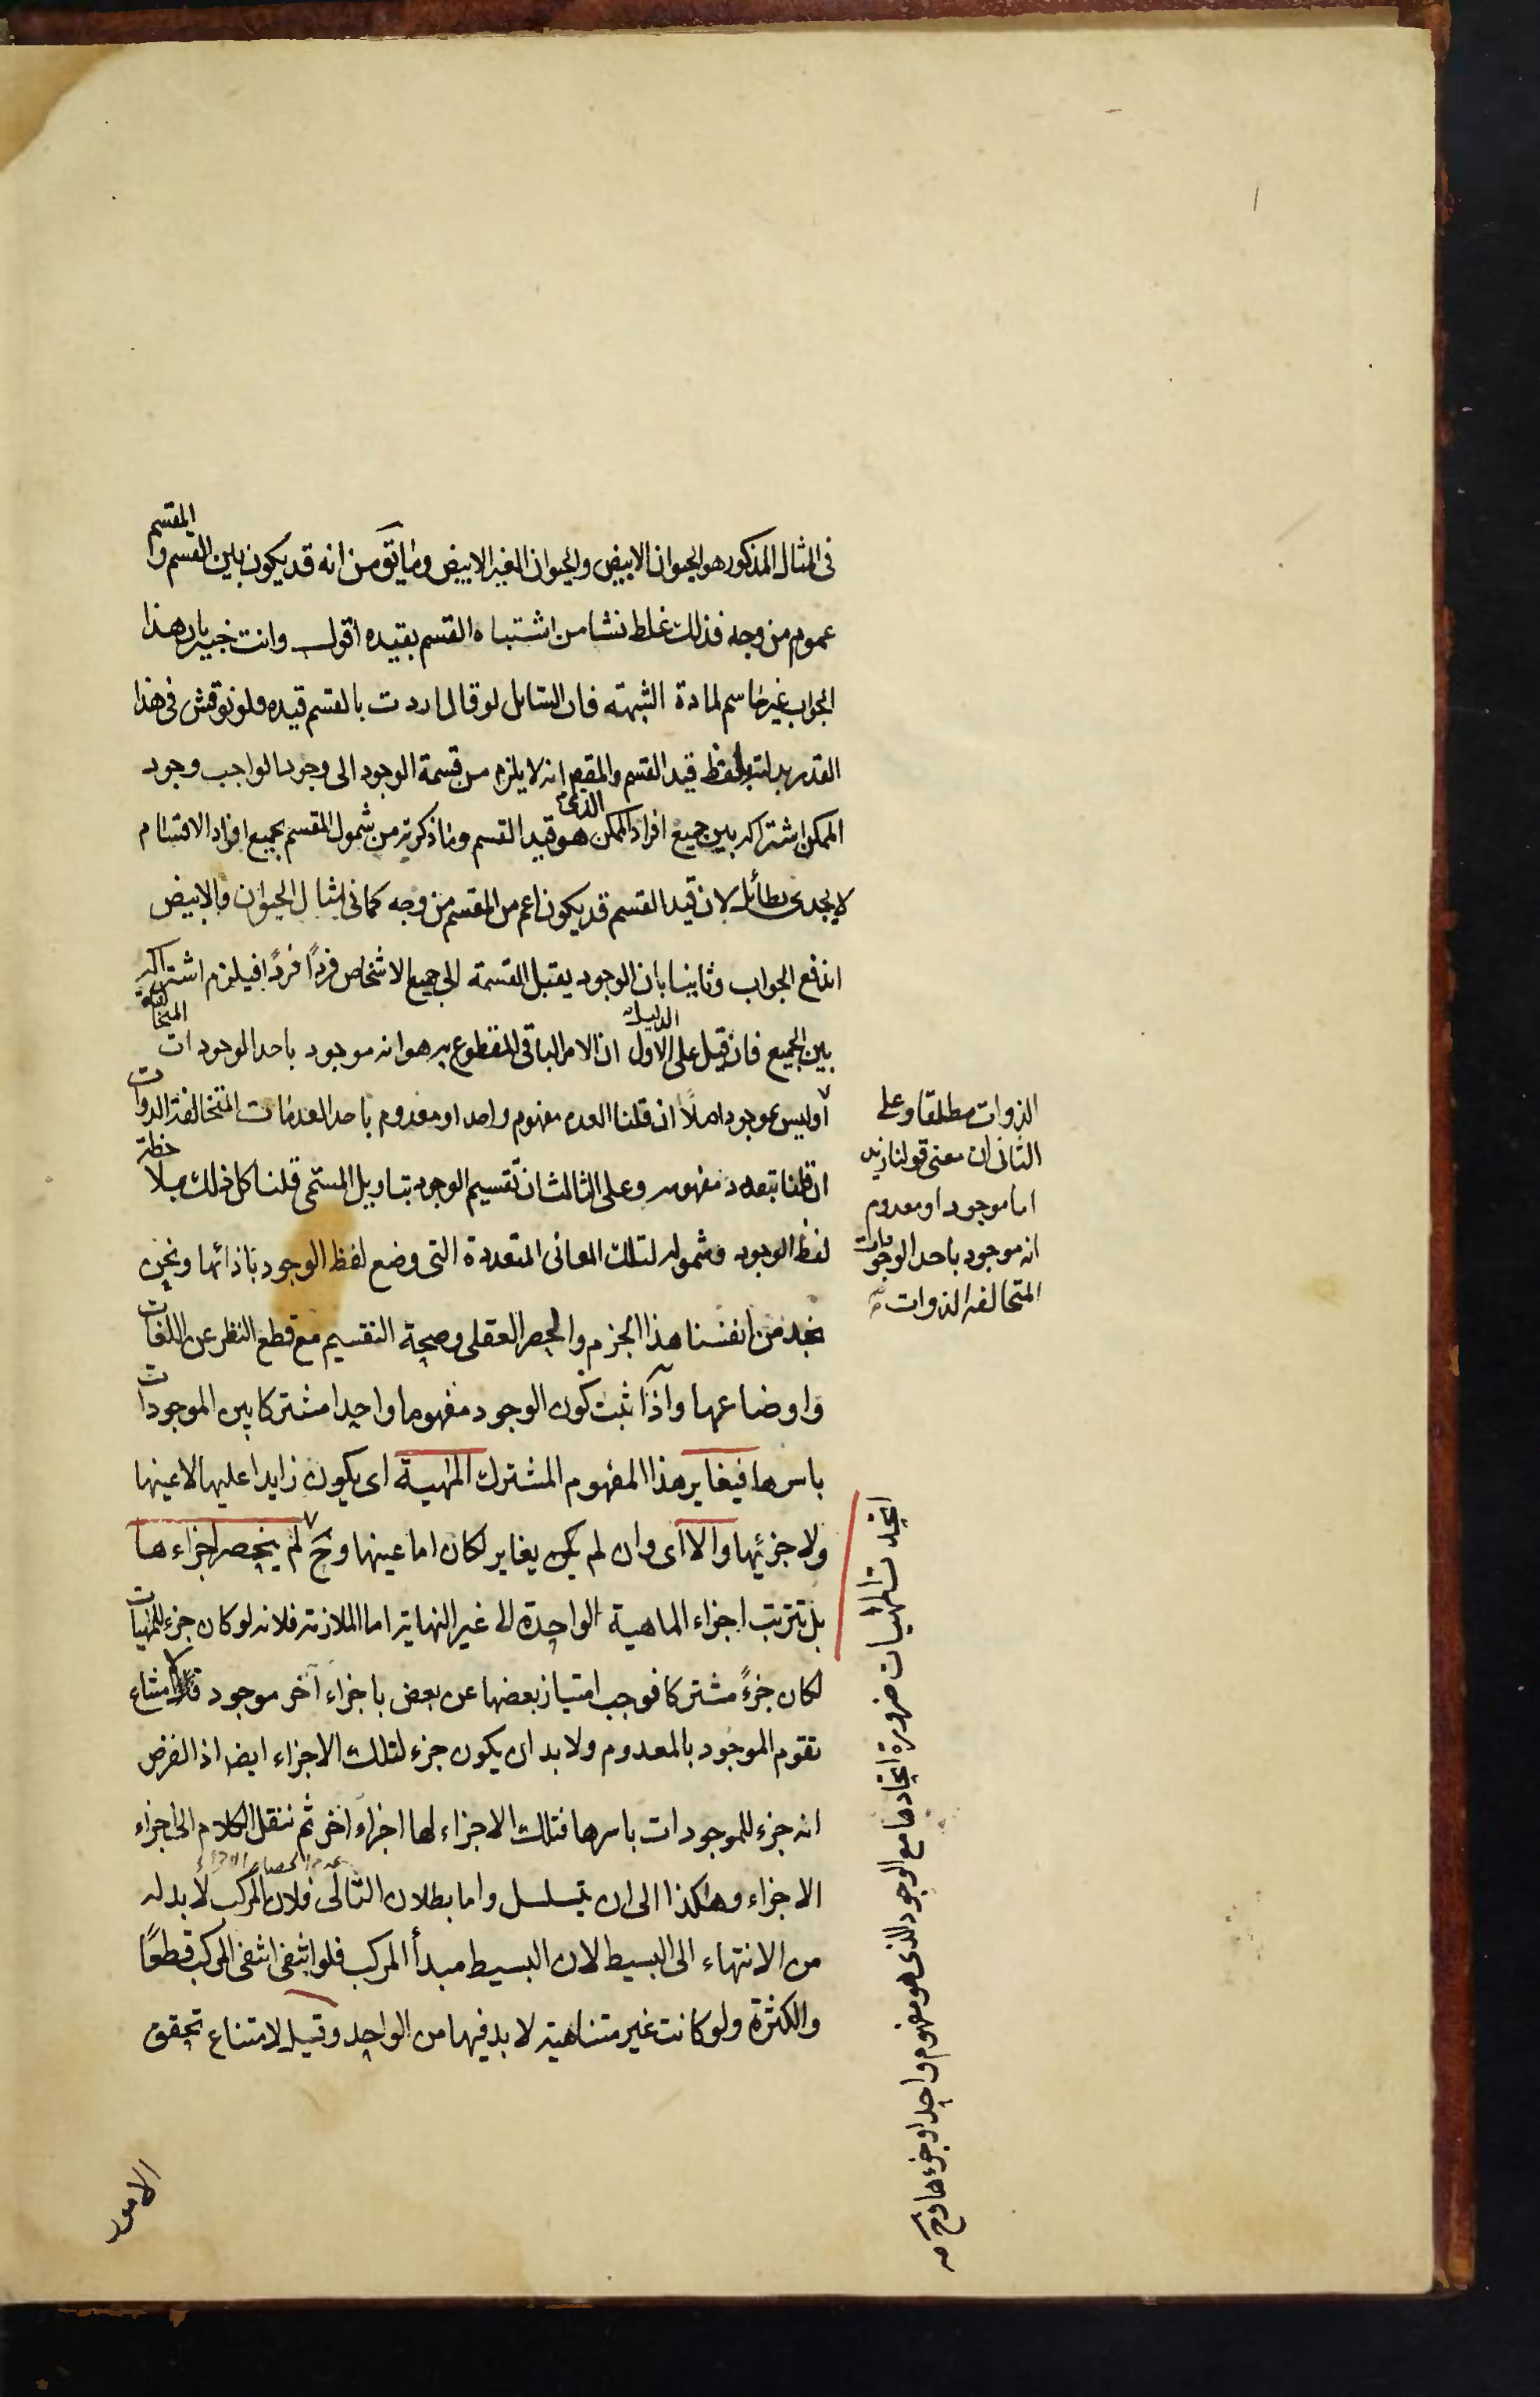 فى المثال المذكور هو الحيوان الابيض والحيوان الغير الابيض وما يتوهم من انه قد يكون بين القسم والمقسم
عموم من وجه فذلك غلط نشا من اشتباه القسم بقيده اقول وانت خبير بان هذا
الجواب غير حاسم لمادة الشبهته فان السائل لو قال اردت بالقسم قيده ولو نوقش فى هذا
القدر بدلت لفظ قيد القسم والمقصود انه لا يلزم من قسمة الوجود الى وجود الواجب وجود
الممكن اشتراكه بين جميع افراد الممكن الذى هو قيد القسم وما ذكرته من شمول المقسم بجميع افراد الاقسام
لا يجدى بطائل لان قيد القسم قد يكون اعم من المقسم من وجه كما فى مثال الحيوان والابيض
اندفع الجواب وثانيا بان الوجود يقبل القسمة الى جميع الاشخاص فردًا فردًا فيلزم اشتراكه
بين الجميع فان قيل على الدليل الاول ان الامر الباقى المقطوع به هو انه موجود باحد الوجودات المتخالفة
أو ليس بموجود اصلًا ان قلنا العدم مفهوم واحد او معدوم باحد العدمات المتخالفة الذوات
ان قلنا بتعدد مفهومه وعلى الثالث ان تقسيم الوجود بتاويل المسمى قلنا كل ذلك بملاحظة
لفظ الوجود وشموله لتلك المعانى المتعددة التى وضع لفظ الوجود باذائها ونحن
نجد من انفسنا هذا الجزم والحصر العقلى وصحة التقسيم مع قطع النظر عن اللغات
واوضاعها واذا ثبت كون الوجود مفهوما واحدا مشتركا بين الموجودات
باسرها فيغاير هذا المفهوم المشترك المهية اى يكون زايدا عليها لا عينها
ولا جزئيها والا اى وان لم يكن يغاير لكان اما عينها وح لم ينحصر اجزاءها
بل تترتب اجزاء الماهية الواحدة الى غير النهاية اما الملازمة فلانه لو كان جزء للمهيات
لكان جزءً مشتركا فوجب امتياز بعضها عن بعض باجزاء آخر موجود لامتناع
تقوم الموجود بالمعدوم ولا بد ان يكون جزء لتلك الاجزاء ايضا اذ الفرض
انه جزء للموجودات باسرها فتلك الاجزاء لها اجزاء اخر ثم ننقل الكلام الى اجزاء
الاجزاء وهكذا الى ان تسلسل واما بطلان التالى فلان المركب لا بد له
عدم انحصار الاجزاء
من الانتهاء الى البسيط لان البسيط مبدأ المركب فلو انتفى انتفى المركب قطعًا
والكثرة ولو كانت غير متناهية لا بد فيها من الواحد وقيل لامتناع تحقق
الامور
الذوات مطلقا وعلى
الثانى ان معنى قولنا زيد
اما موجود او معدوم
انه موجود باحد الوجودات
المتخالفه الذوات منه
اتحدت المهيات ضرورة اتحادها مع الوجود الذى هو مفهوم واحد او جزءها وح منه